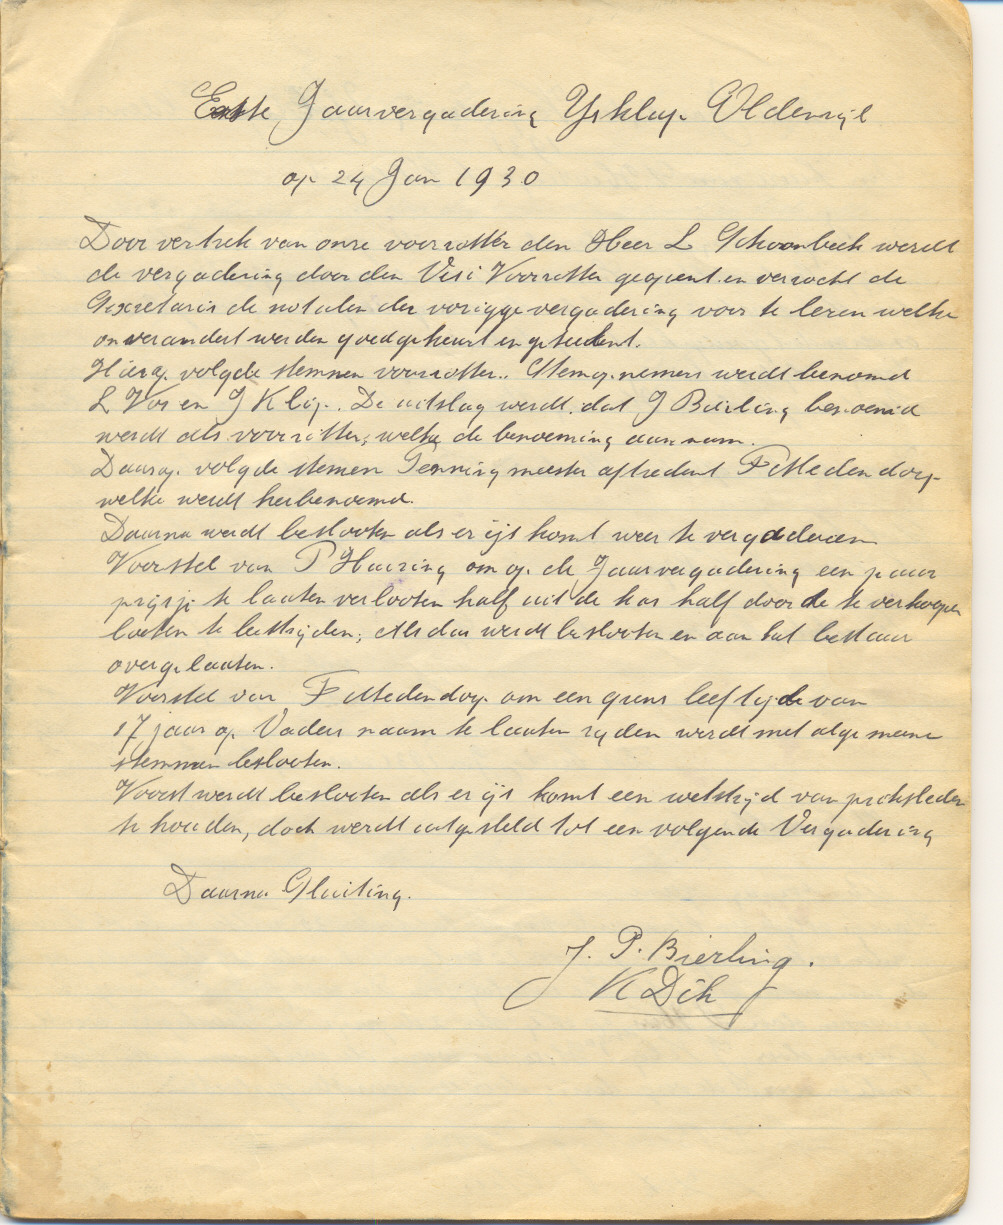 Eerste Jaarvergadering Ysklup Oldenzijl
op 24 Jan 1930
Door vertrek van onze voorzitter den Heer L Schoonbeek werdt
de vergadering door den Visi Voorzitter geopent en verzocht de
Secretaris de notulen der vorigge vergadering voor te lezen welke
onverandert werden goedgekeurt en getekent.
Hierop volgde stemmen voorzitter. Stemopnemers werdt benoemd
L Vos en J Klip. De uitslag werdt dat J Bierling benoemd
werdt als voorzitter, welke de benoeming aannam.
Daarop volgde stemen Penningmeester aftredent F Stedendorp
welke werdt herbenoemd.
Daarna werdt beslooten als er ijs komt weer te vergaderen
Voorstel van P Huizing om op de Jaarvergadering een paar
prijsje te laaten verlooten half uit de kas half door de te verkoopen
looten te bestrijden, Aldus werdt beslooten en aan het bestuur
overgelaaten.
Voorstel van F Stedendorp om een grens leeftijd van
17 jaar op Vaders naam te laaten rijden werdt met algemeene
stemmen beslooten.
Voorst werdt beslooten als er ijs komt een wetstrijd van priksleden
te houden, doch werdt uitgesteld tot een volgende Vergadering
Daarna Sluiting.
J. P. Bierling.
K Dik